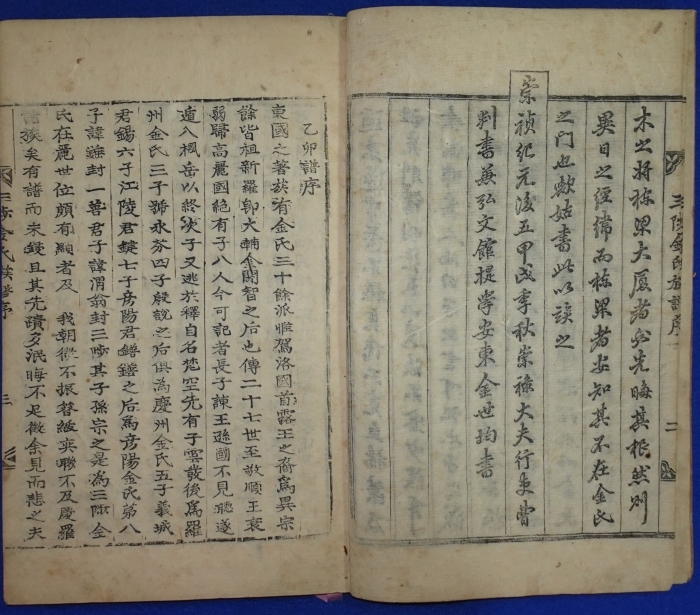 三陟金氏族譜序 二
木之將棟梁大厦者必先晦其根然則
異日之經緯而棟梁者安知其不在金氏
之門也歟姑書此以諉之
崇禎紀元後五甲戌季秋崇祿大夫行吏曹
判書兼弘文館提學安東金世均書
乙卯譜序
東國之著族有金氏三十餘派惟駕洛國首露王之裔爲異宗
餘皆祖新羅卽大輔金閼智之后也傳二十七世至敬順王衰
弱歸高麗國絶有子八人今可記者長子諫王遜國不見聽遂
遁入楓岳以終次子又逃於釋自名梵空先有子雲發後爲羅
州金氏三子鳴永芬四子殷說之后俱爲慶州金氏五子義城
君錫六子江陵君鍵七子彦陽君鐥鐥之后爲彦陽金氏第八
子諱錘封一善君子諱渭翁封三陟其子孫宗之是爲三陟金
氏在麗世位頗有顯者及 我朝微不振奕聯不及慶羅
諸族矣有譜而未鋟且其先蹟多泯晦不足徵余見而悲之夫
三陟金氏族譜序 三